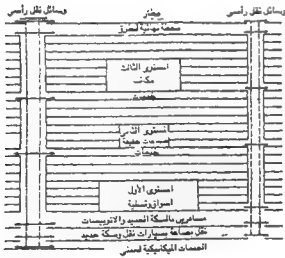 وسائل نقل رأسى
وسائل نقل رأسى
محطة نهائية
المستوى الثالث
مكاتب
خدمات
المستوى الثانى
خدمات
المستوى الأول
أسواق وتسلية
مسافرين بالسكة الحديد والاتوبيسات
نقل بضاعة بسيارات نقل وسكة حديد
الخدمات الميكانيكية للمبنى